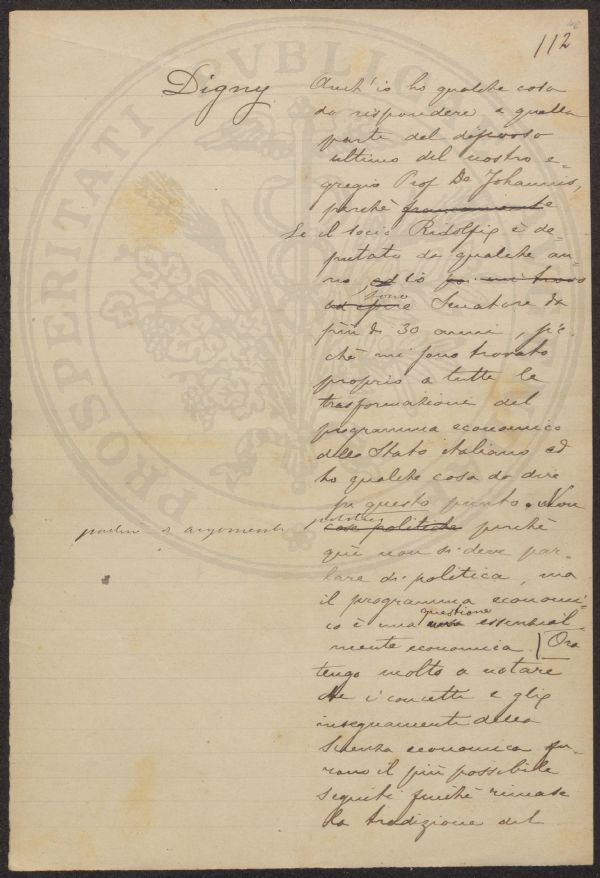 112
Digny
Anch'io ho qualche cosa
da rispondere a quella
parte del discorso
ultimo del nostro e-
gregio Prof De Johannis,
perchè francamente
Se il socio Ridolfi è de-
putato da qualche an-
no, ed io mi trovo
ad sono Senatore da
più di 30 anni, per-
chè mi sono trovato
proprio a tutte le
trasformazione del
programma economico
dello Stato italiano ed
ho qualche cosa da dire
su questo punto. Non
parlerò di argomenti politici
cose politiche perchè
qui non si deve par-
lare di politica, ma
il programma economi-
co è una questione essenzial-
mente economica. Ora
tengo molto a notare
che i concetti e gli
insegnamenti della
scienza economica fu-
rono il più possibile
seguiti finchè rimase
la tradizione del